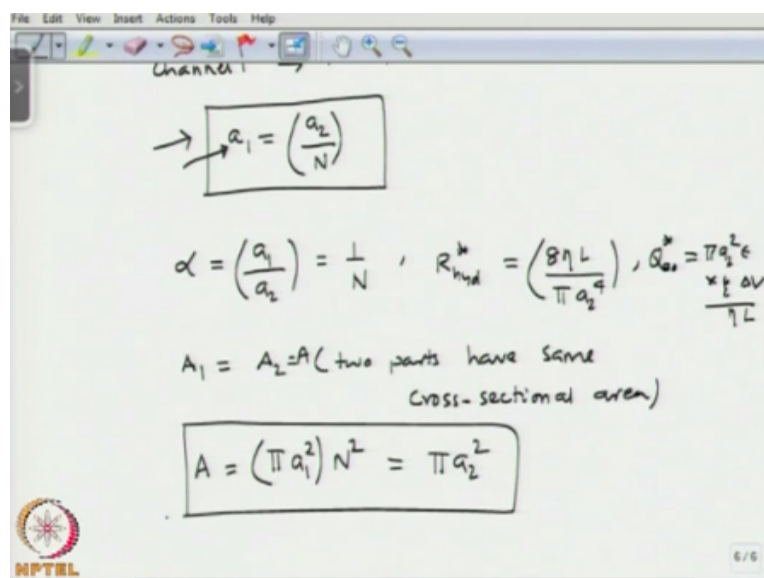 File Edit View Insert Actions Tools Help
Channel 1 →
→ a₁ = (a₂/N)
α = (a₁/a₂) = 1/N , R*hyd = (8ηL/πa₂⁴) , Q*eo = πa₂²ε
× ξ ΔV
ηL
A₁ = A₂ = A (two parts have same
cross-sectional area)
A = (πa₁²) N² = πa₂²
NPTEL
6/6